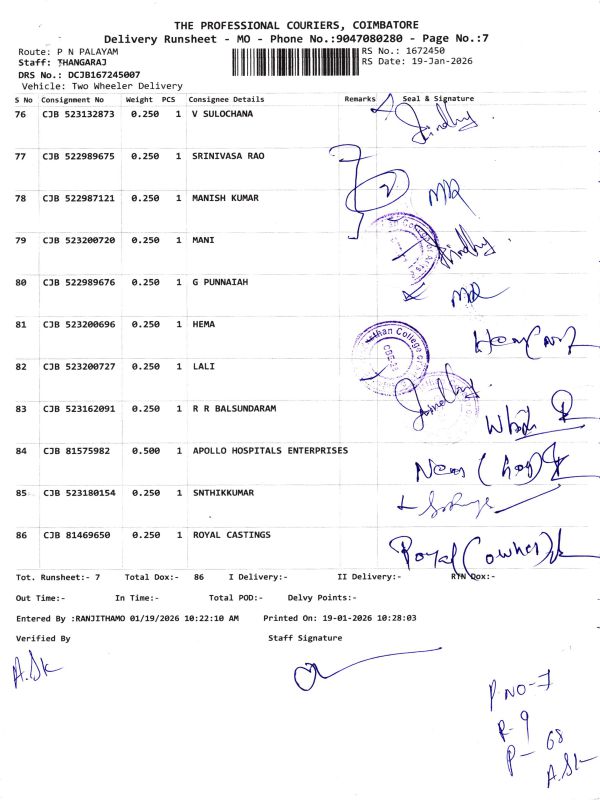 THE PROFESSIONAL COURIERS, COIMBATORE
Delivery Runsheet - MO - Phone No.:9047080280 - Page No.:7
Route: P N PALAYAM
RS No.: 1672450
Staff: THANGARAJ
RS Date: 19-Jan-2026
DRS No.: DCJB167245007
Vehicle: Two Wheeler Delivery
S No Consignment No Weight PCS Consignee Details Remarks Seal & Signature
76 CJB 523132873 0.250 1 V SULOCHANA
77 CJB 522989675 0.250 1 SRINIVASA RAO
78 CJB 522987121 0.250 1 MANISH KUMAR
79 CJB 523200720 0.250 1 MANI
80 CJB 522989676 0.250 1 G PUNNAIAH
81 CJB 523200696 0.250 1 HEMA
82 CJB 523200727 0.250 1 LALI
83 CJB 523162091 0.250 1 R R BALSUNDARAM
84 CJB 81575982 0.500 1 APOLLO HOSPITALS ENTERPRISES
85 CJB 523180154 0.250 1 SNTHIKKUMAR
86 CJB 81469650 0.250 1 ROYAL CASTINGS
Royal (owner)
Tot. Runsheet:- 7 Total Dox:- 86 I Delivery:- II Delivery:- RTN Dox:-
Out Time:- In Time:- Total POD:- Delvy Points:-
Entered By :RANJITHAMO 01/19/2026 10:22:10 AM Printed On: 19-01-2026 10:28:03
Verified By Staff Signature
P NO-7
R-9
P- 68